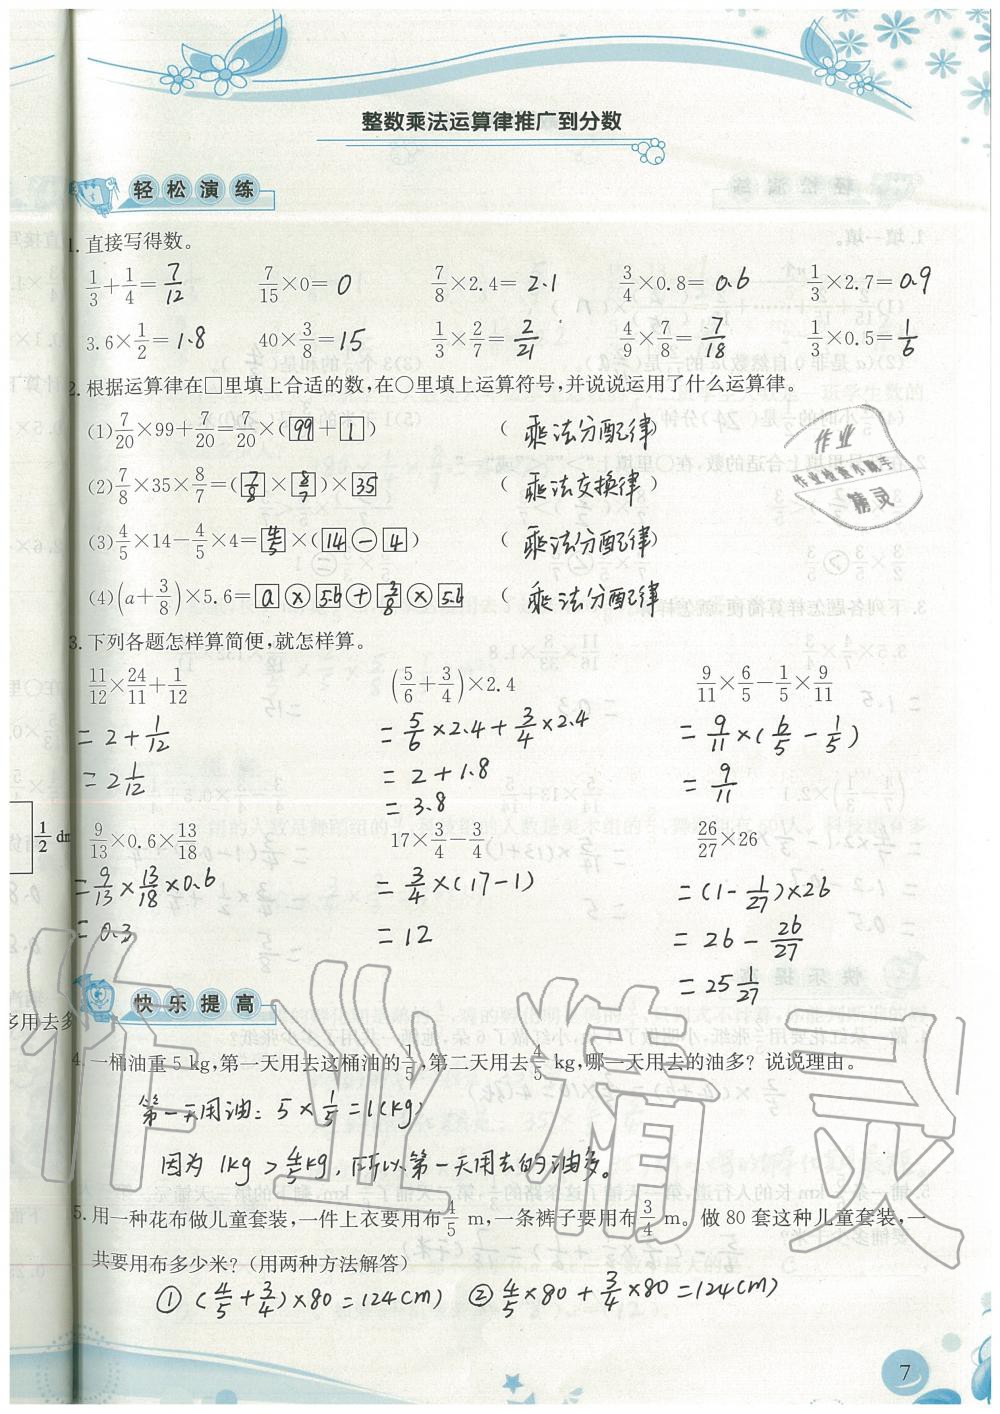 整数乘法运算律推广到分数
轻松演练
1.直接写得数。
1/3+1/4=7/12 7/15×0=0 7/8×2.4=2.1 3/4×0.8=0.6 1/3×2.7=0.9
3.6×1/2=1.8 40×3/8=15 1/3×2/7=2/21 4/9×7/8=7/18 1/3×0.5=1/6
2.根据运算律在□里填上合适的数,在○里填上运算符号,并说说运用了什么运算律。
(1)7/20×99+7/20=7/20×(99+1) (乘法分配律)
(2)7/8×35×8/7=(7/8×8/7)×35 (乘法交换律)
(3)4/5×14-4/5×4=4/5×(14-4) (乘法分配律)
(4)(a+3/8)×5.6=a×5.6+3/8×5.6 (乘法分配律
3.下列各题怎样算简便,就怎样算。
11/12×24/11+1/12 (5/6+3/4)×2.4 9/11×6/5-1/5×9/11
=2+1/12 =5/6×2.4+3/4×2.4 =9/11×(6/5-1/5)
=2 1/12 =2+1.8 =9/11
=3.8
9/13×0.6×13/18 17×3/4-3/4 26/27×26
=9/13×13/18×0.6 =3/4×(17-1) =(1-1/27)×26
=0.3 =12 =26-26/27
=25 1/27
快乐提高
4.一桶油重5 kg,第一天用去这桶油的1/5,第二天用去4/5 kg,哪一天用去的油多?说说理由。
第一天用油:5×1/5=1(kg)
因为1kg>4/5kg,所以第一天用去的油多。
5.用一种花布做儿童套装,一件上衣要用布4/5 m,一条裤子要用布3/4 m。做80套这种儿童套装,一
共要用布多少米?(用两种方法解答)
①(4/5+3/4)×80=124(m) ②4/5×80+3/4×80=124(m)
7
1/2 dm
多用去多
作业
作业检查小助手
精灵
作业精灵